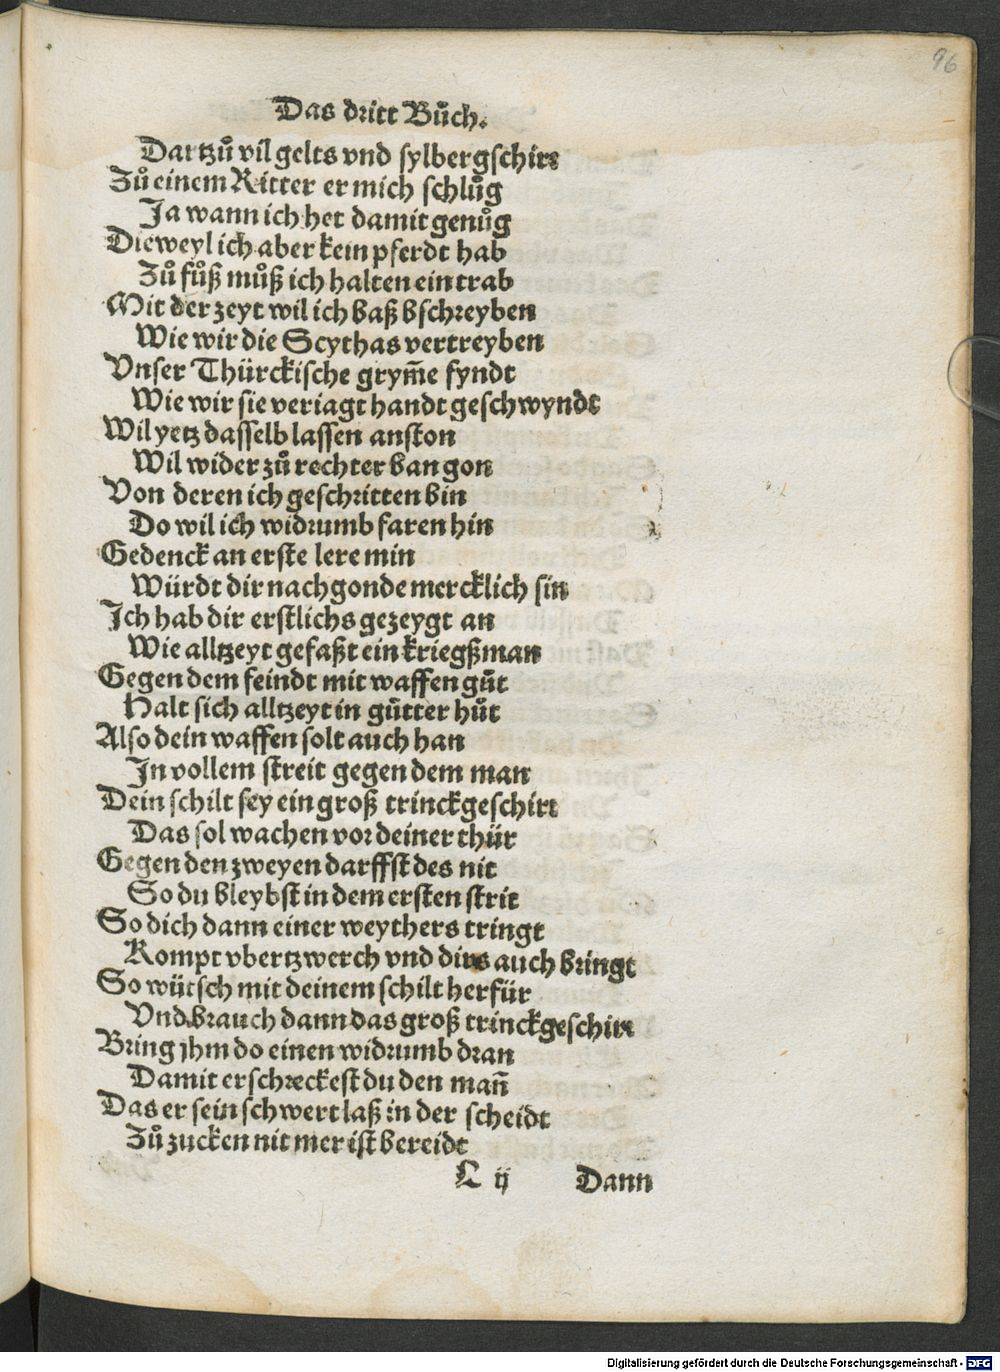 96
Das dritt Bůch.
Dartzů vil gelts vnd sylbergschirr
Zů einem Ritter er mich schlůg
Ja wann ich het damit genůg
Dieweyl ich aber kein pferdt hab
Zů fůß můß ich halten ein trab
Mit der zeyt wil ich baß bschreyben
Wie wir die Scythas vertreyben
Vnser Thürckische grym̃e fyndt
Wie wir sie veriagt handt geschwyndt
Wil yetz dasselb lassen anston
Wil wider zů rechter ban gon
Von deren ich geschritten bin
Do wil ich widrumb faren hin
Gedenck an erste lere min
Würdt dir nachgonde mercklich sin
Ich hab dir erstlichs gezeygt an
Wie alltzeyt gefaßt ein kriegßman
Gegen dem feindt mit waffen gůt
Halt sich alltzeyt in gůtter hůt
Also dein waffen solt auch han
In vollem streit gegen dem man
Dein schilt sey ein groß trinckgeschirr
Das sol wachen vor deiner thür
Gegen den zweyen darffst des nit
So du bleybst in dem ersten strit
So dich dann einer weythers tringt
Kompt vbertzwerch vnd dirs auch bringt
So wütsch mit deinem schilt herfür
Vnd brauch dann das groß trinckgeschirr
Bring jhm do einen widrumb dran
Damit erschreckest du den mañ
Das er sein schwert laß in der scheidt
Zů zucken nit mer ist bereidt
L ij Dann
Digitalisierung gefördert durch die Deutsche Forschungsgemeinschaft - DFG